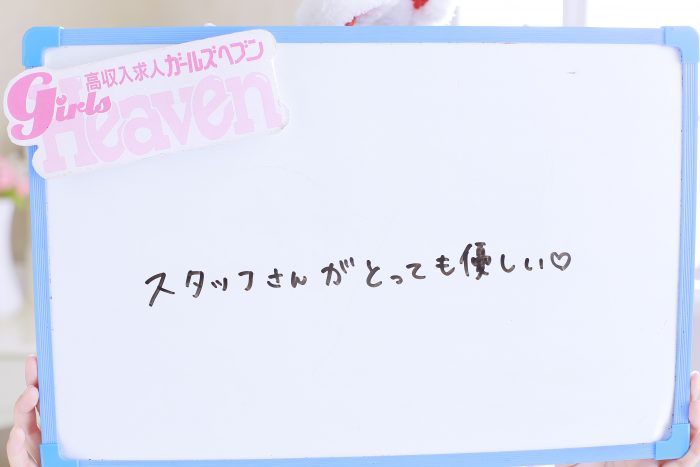 高収入求人ガールズヘブン
Girls
Heaven
スタッフさんがとっても優しい♡